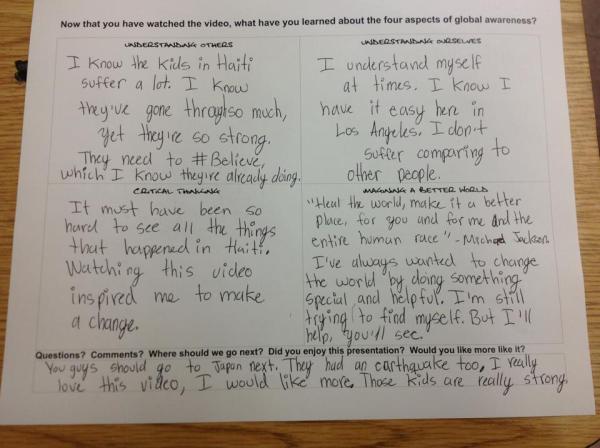 Now that you have watched the video, what have you learned about the four aspects of global awareness?
UNDERSTANDING OTHERS
I know the kids in Haiti
suffer a lot. I know
they've gone through so much,
yet they're so strong.
They need to #Believe,
which I know they're already doing.
UNDERSTANDING OURSELVES
I understand myself
at times. I know I
have it easy here in
Los Angeles. I don't
suffer comparing to
other people.
CRITICAL THINKING
It must have been so
hard to see all the things
that happened in Haiti.
Watching this video
inspired me to make
a change.
IMAGINING A BETTER WORLD
"Heal the world, make it a better
place, for you and for me and the
entire human race" - Michael Jackson
I've always wanted to change
the world by doing something
special and helpful. I'm still
trying to find myself. But I'll
help, you'll see.
Questions? Comments? Where should we go next? Did you enjoy this presentation? Would you like more like it?
You guys should go to Japan next. They had an earthquake too, I really
love this video, I would like more. Those kids are really strong.